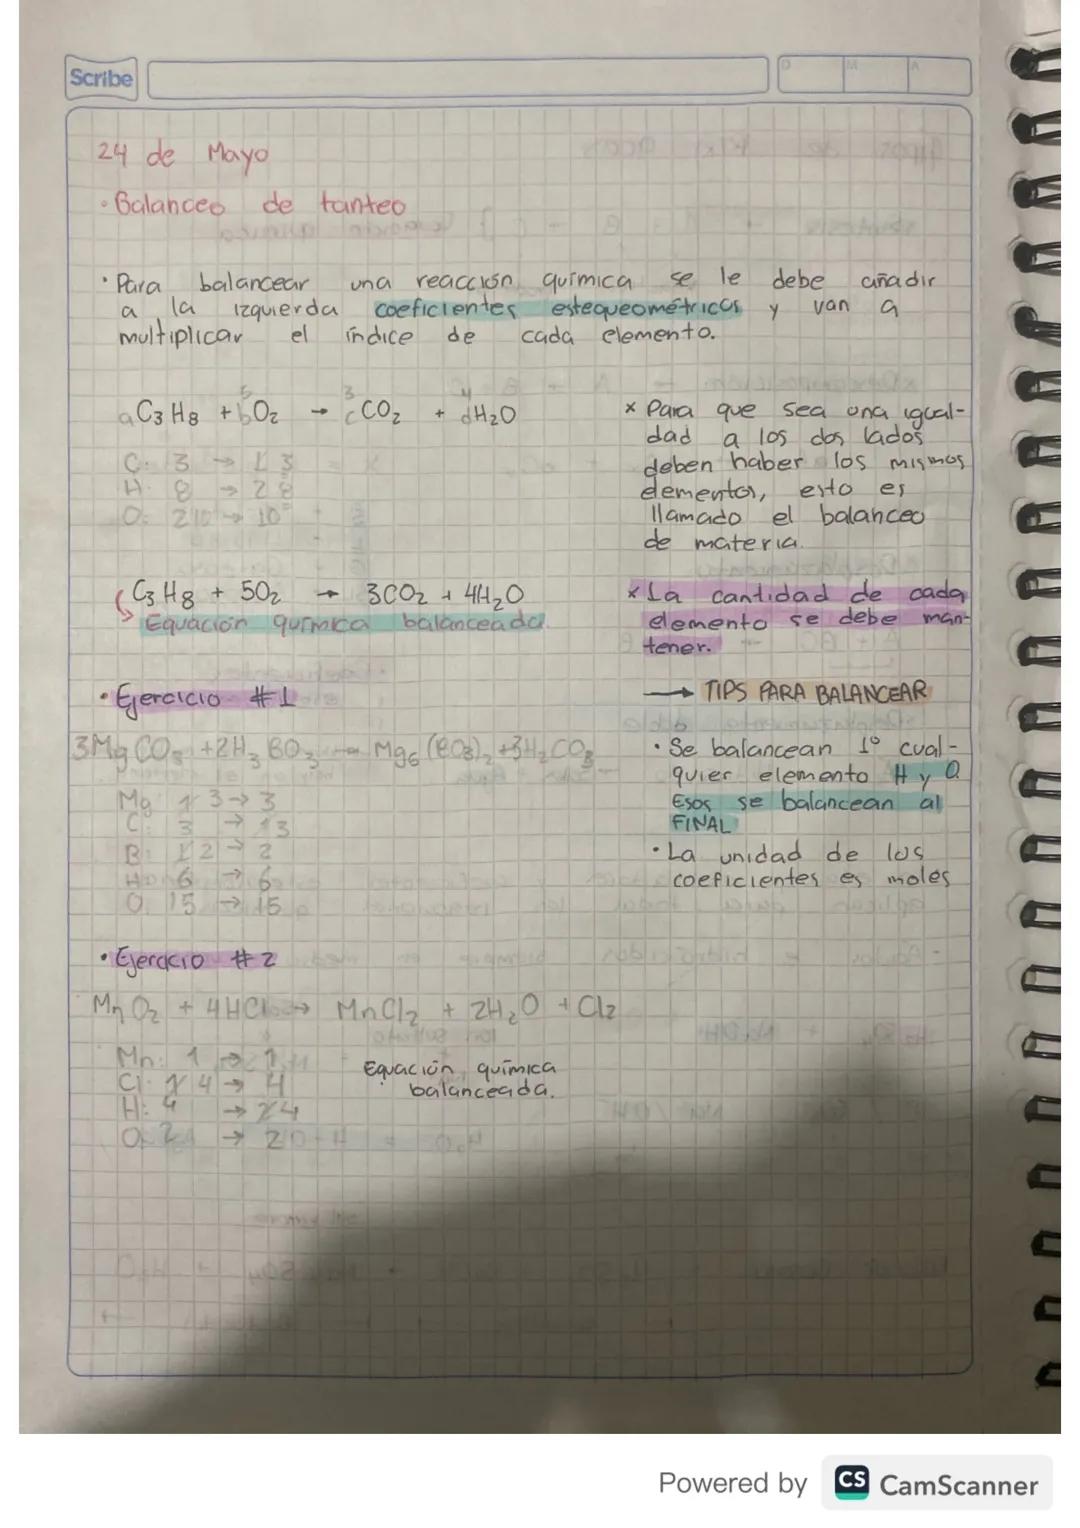 Scribe
D M A
24 de Mayo
· Balanceo de tanteo
· Para balancear una reacción química se le debe añadir
a la izquierda coeficientes estequeométricos y van a
multiplicar el índice de cada elemento.
5 3 4
aC3H8 + bO2 → cCO2 + dH2O
C: 3 → 1 3
H: 8 → 2 8
O: 2 10 → 10
x Para que sea una igual-
dad a los dos lados
deben haber los mismos
elementos, esto es
llamado el balanceo
de materia.
C3H8 + 5O2 → 3CO2 + 4H2O
Equación química balanceada.
x La cantidad de cada
elemento se debe man-
tener.
· Ejercicio #1
3MgCO3 + 2H3BO3 → Mg6(BO3)2 + 3H2CO3
Mg 1 3 → 3
C: 3 → 1 3
B: 1 2 → 2
H: 6 → 6
O: 15 → 15
→ TIPS PARA BALANCEAR
· Se balancean 1° cual-
quier elemento H y O
Esos se balancean al
FINAL
· La unidad de los
coeficientes es moles
· Ejercicio #2
MnO2 + 4HCl → MnCl2 + 2H2O + Cl2
Mn: 1 → 1
Cl: 1 4 → 4
H: 4 → 2 4
O: 2 → 2
Equación química
balanceada.
Powered by CS CamScanner